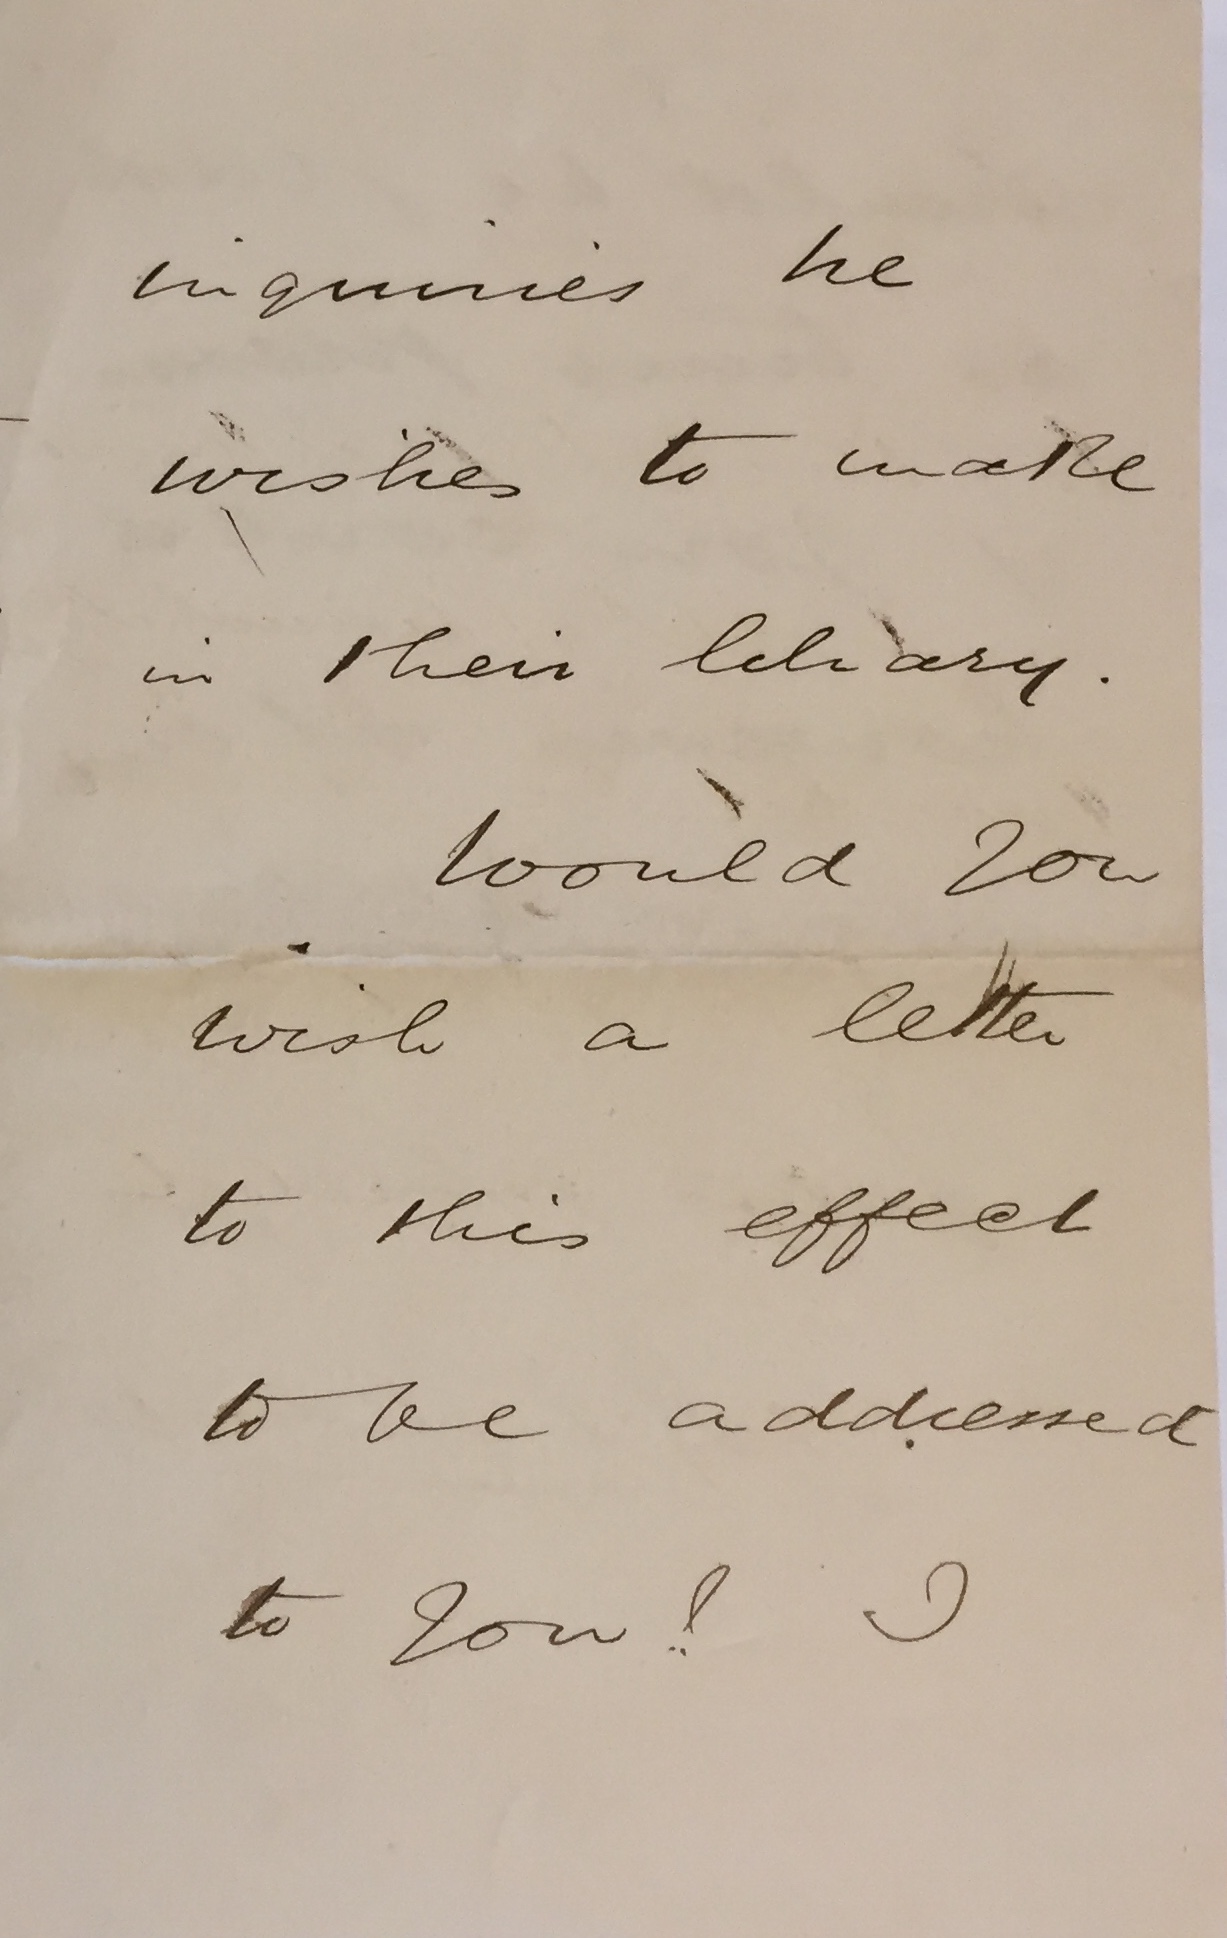 inquiries he
wishes to make
in their library.
Would you
wish a letter
to this effect
to be addressed
to you? I